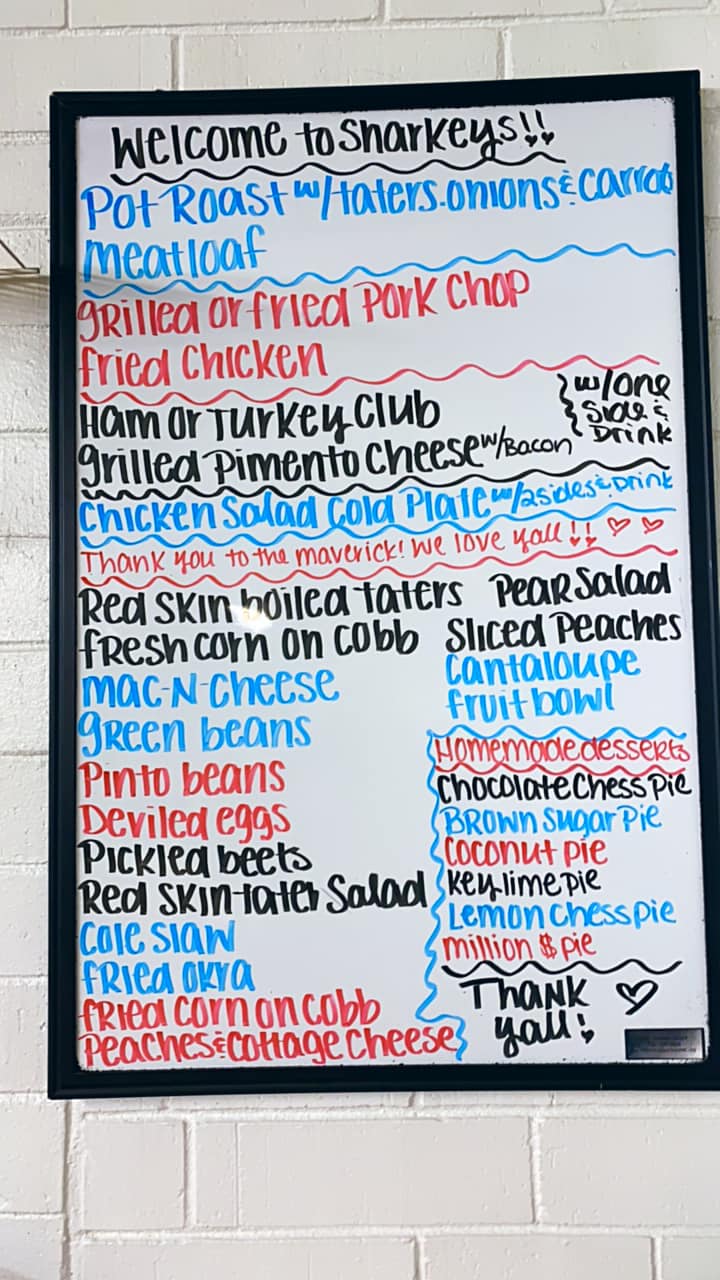 Welcome to Sharkeys!!
Pot Roast w/taters.onions & carrots
meatloaf
grilled or fried Pork Chop
fried Chicken
Ham or Turkey Club
grilled Pimento Cheese w/Bacon
w/one
Side &
Drink
Chicken Salad Cold Plate w/2sides & Drink
Thank you to the maverick! We love yall!! ♡ ♡
Red Skin boiled taters
fresh corn on cobb
mac-N-Cheese
green beans
Pinto beans
Deviled eggs
Pickled beets
Red Skin tater Salad
Cole Slaw
fried okra
fried corn on cobb
Peaches & Cottage Cheese
Pear Salad
Sliced Peaches
Cantaloupe
fruit bowl
Homemade desserts
Chocolate Chess Pie
Brown Sugar Pie
Coconut pie
Key lime pie
Lemon chess pie
million $ pie
Thank ♡
yall!